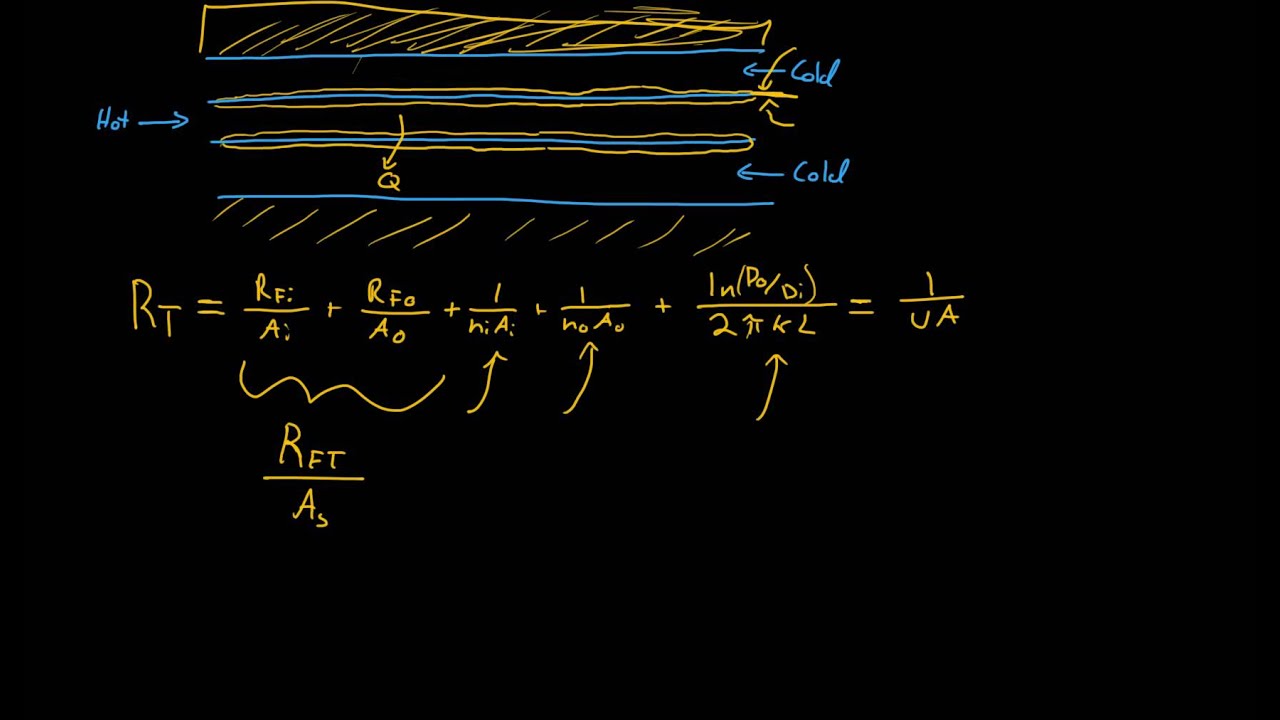 Cold
Hot
Cold
Q
R_T = R_Fi/A_i + R_Fo/A_o + 1/(h_i A_i) + 1/(h_o A_o) + ln(D_o/D_i)/(2πkL) = 1/(UA)
R_FT/A_s